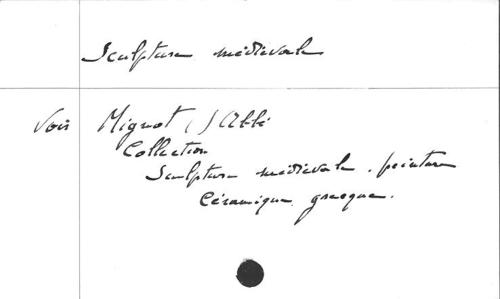 Sculpture médiévale
Voir Mignot ( ) Abbé
Collection
Sculpture médiévale, peinture
Céramique grecque.